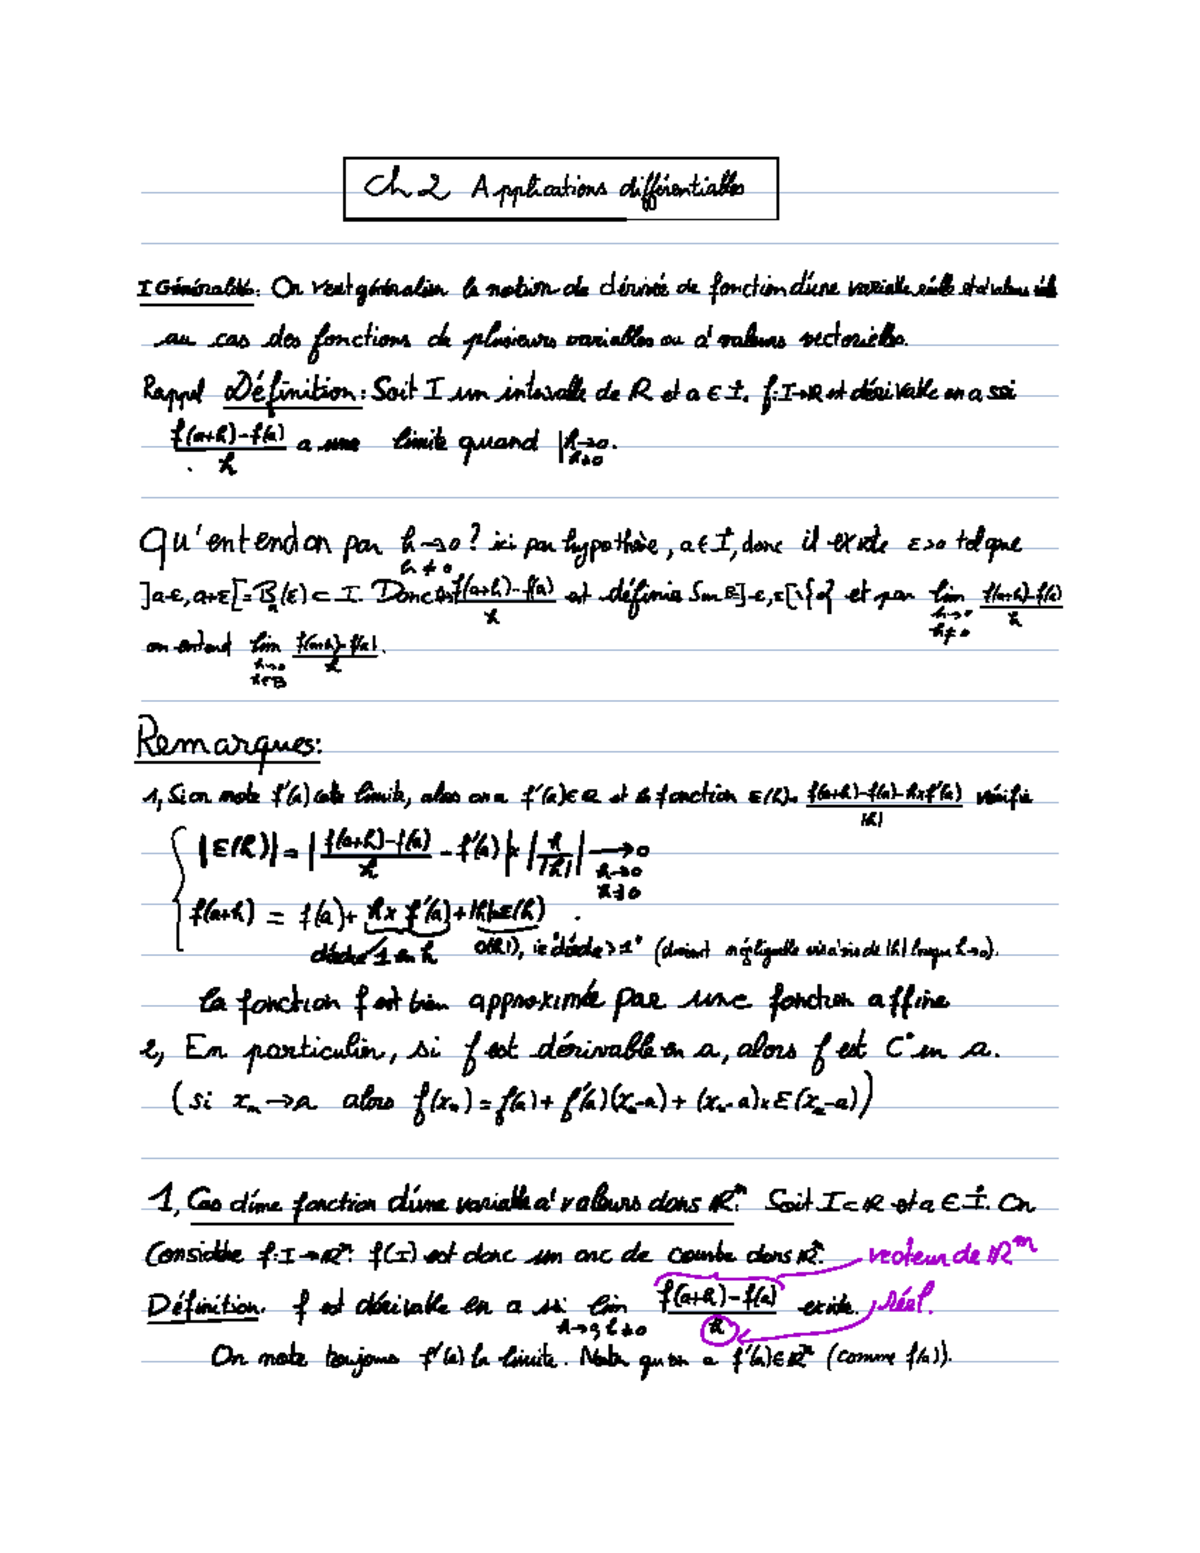 Ch 2 Applications différentiables
I Généralités: On veut généraliser la notion de dérivée de fonction d'une variable réelle et à valeurs
au cas des fonctions de plusieurs variables ou à valeurs vectorielles.
Rappel Définition: Soit I un intervalle de ℝ et a ∈ I̊. f: I→ℝ est dérivable en a si
(f(a+h)-f(a))/h a une limite quand | h→0 h≠0.
Qu'entend on par h→0 h≠0? ici par hypothèse, a ∈ I̊, donc il existe ε>0 tel que
]a-ε, a+ε[ = B_a(ε) ⊂ I. Donc (f(a+h)-f(a))/h est définie sur ]-ε, ε[\{0} et par lim h→0 h≠0 (f(a+h)-f(a))/h
on entend lim h→0 (f(a+h)-f(a))/h.
Remarques:
1, Si on note f'(a) cette limite, alors on a f'(a)∈ℝ et la fonction ε(h)= (f(a+h)-f(a)-h×f'(a))/|h| vérifie
|ε(h)| = |(f(a+h)-f(a))/h - f'(a)| × |h/|h|| → 0 h→0 h≠0
f(a+h) = f(a) + h× f'(a) + |h| ε(h)
d'ordre 1 en h o(|h|), ie "d'ordre > 1" (devient négligeable vis à vis de |h| lorsque h→0).
la fonction f est bien approximée par une fonction affine
2, En particulier, si f est dérivable en a, alors f est C° en a.
(si x_n → a alors f(x_n) = f(a) + f'(a)(x_n-a) + (x_n-a)×ε(x_n-a))
1, Cas d'une fonction d'une variable à valeurs dans ℝⁿ: Soit I⊂ℝ et a ∈ I̊. On
Considère f: I→ℝⁿ: f(I) est donc un arc de courbe dans ℝⁿ. vecteur de ℝᵐ
Définition. f est dérivable en a si lim h→0, h≠0 (f(a+h)-f(a))/h existe. réel.
On note toujours f'(a) la limite. Noter qu'on a f'(a)∈ℝⁿ (comme f(a)).